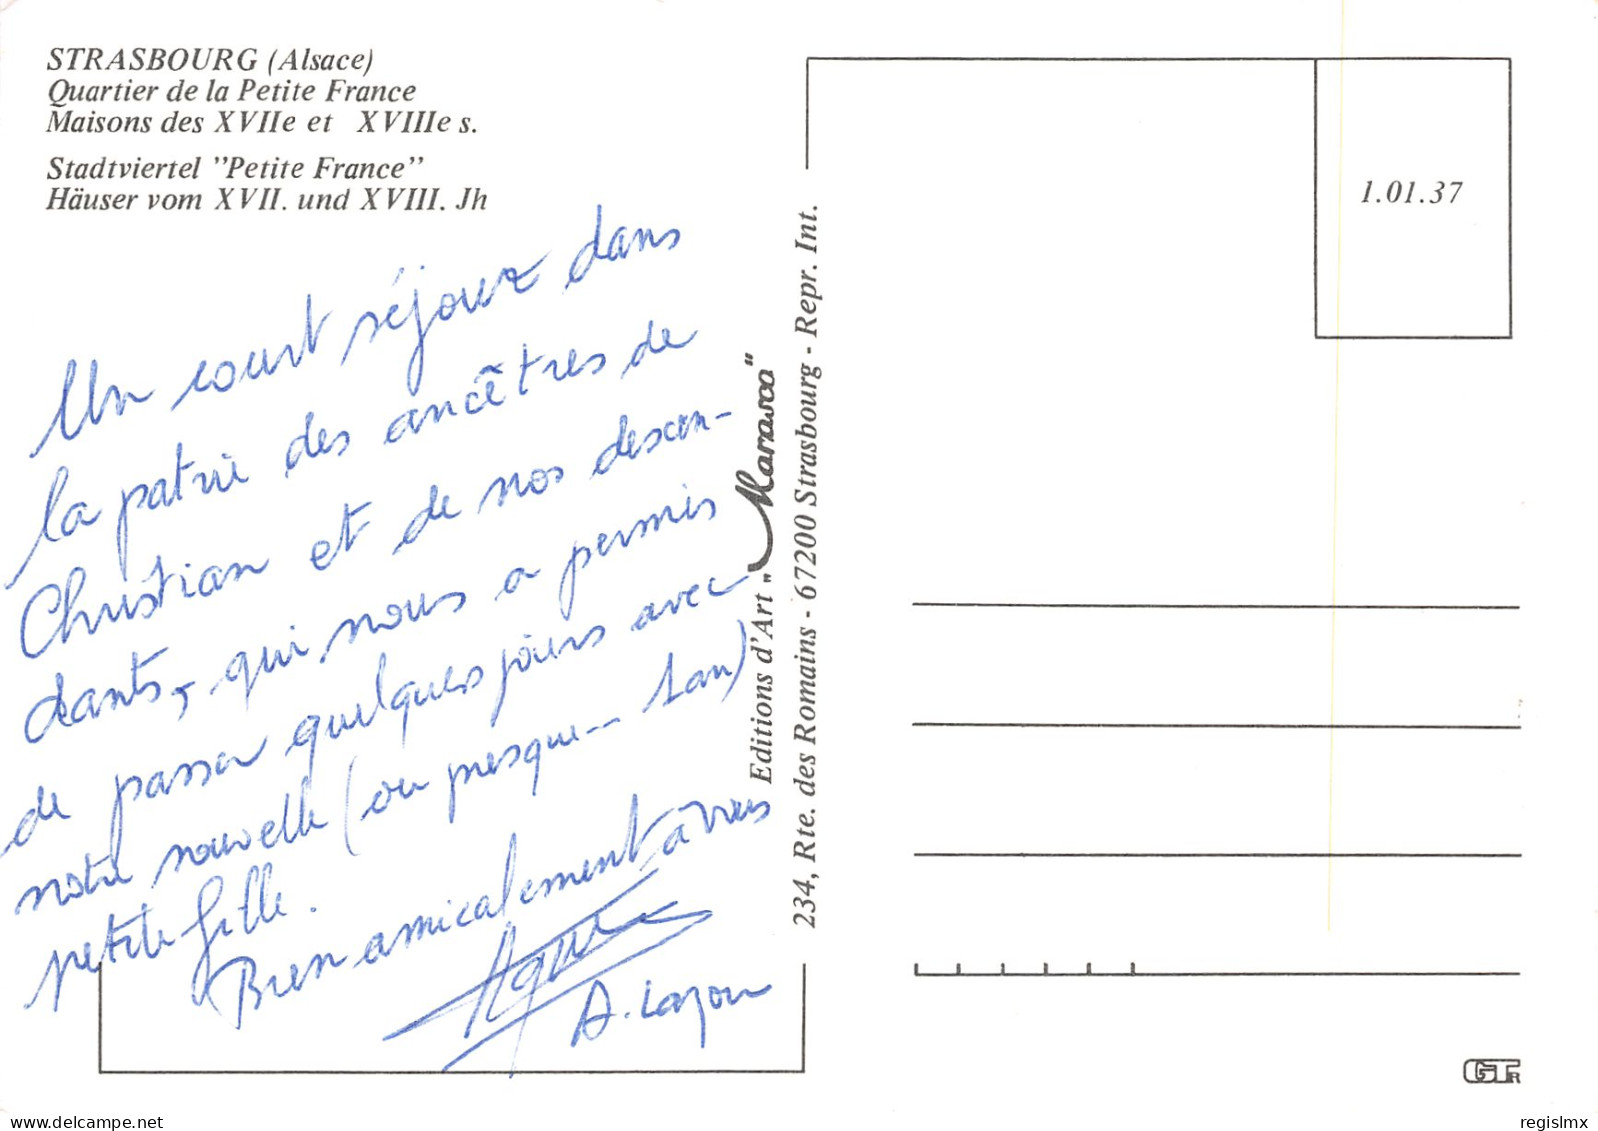 STRASBOURG (Alsace)
Quartier de la Petite France
Maisons des XVIIe et XVIIIe s.
Stadtviertel "Petite France"
Häuser vom XVII. und XVIII. Jh
Un court séjour dans
la patrie des ancêtres de
Christian et de nos descen-
dants, qui nous a permis
de passer quelques jours avec
notre nouvelle (ou presque... 1 an)
petite fille.
Bien amicalement à vous
A.
Editions d'Art "Marasco"
234, Rte. des Romains - 67200 Strasbourg - Repr. Int.
1.01.37
regislmx
delcampe.net